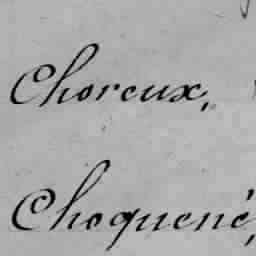 Choreux,
Choquené,